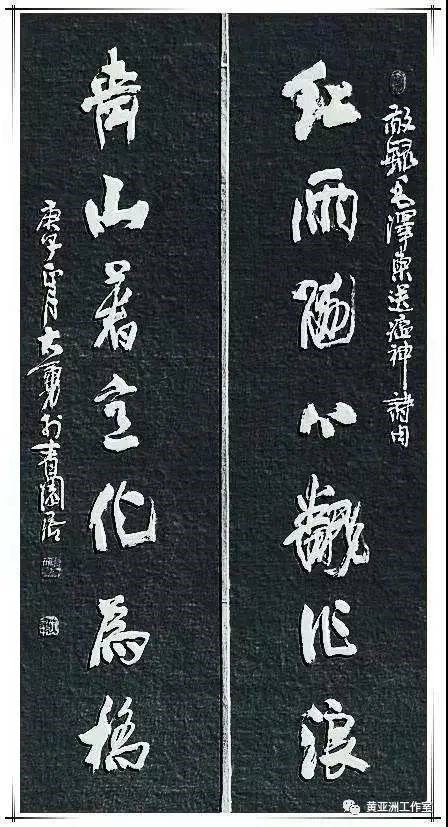 敬録毛澤東送瘟神詩句
紅雨隨心翻作浪
青山着意化為橋
庚子正月大勇於園居
黄亚洲工作室